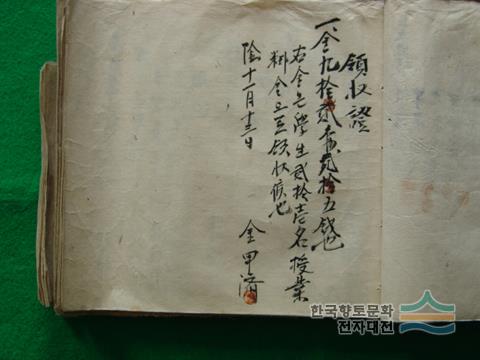 領収證
一、金九拾貳圓貳拾五錢也
右金은學生貳拾壱名授業
料金으로領収候也
陰十一月十三日
金甲濟
한국향토문화
전자대전